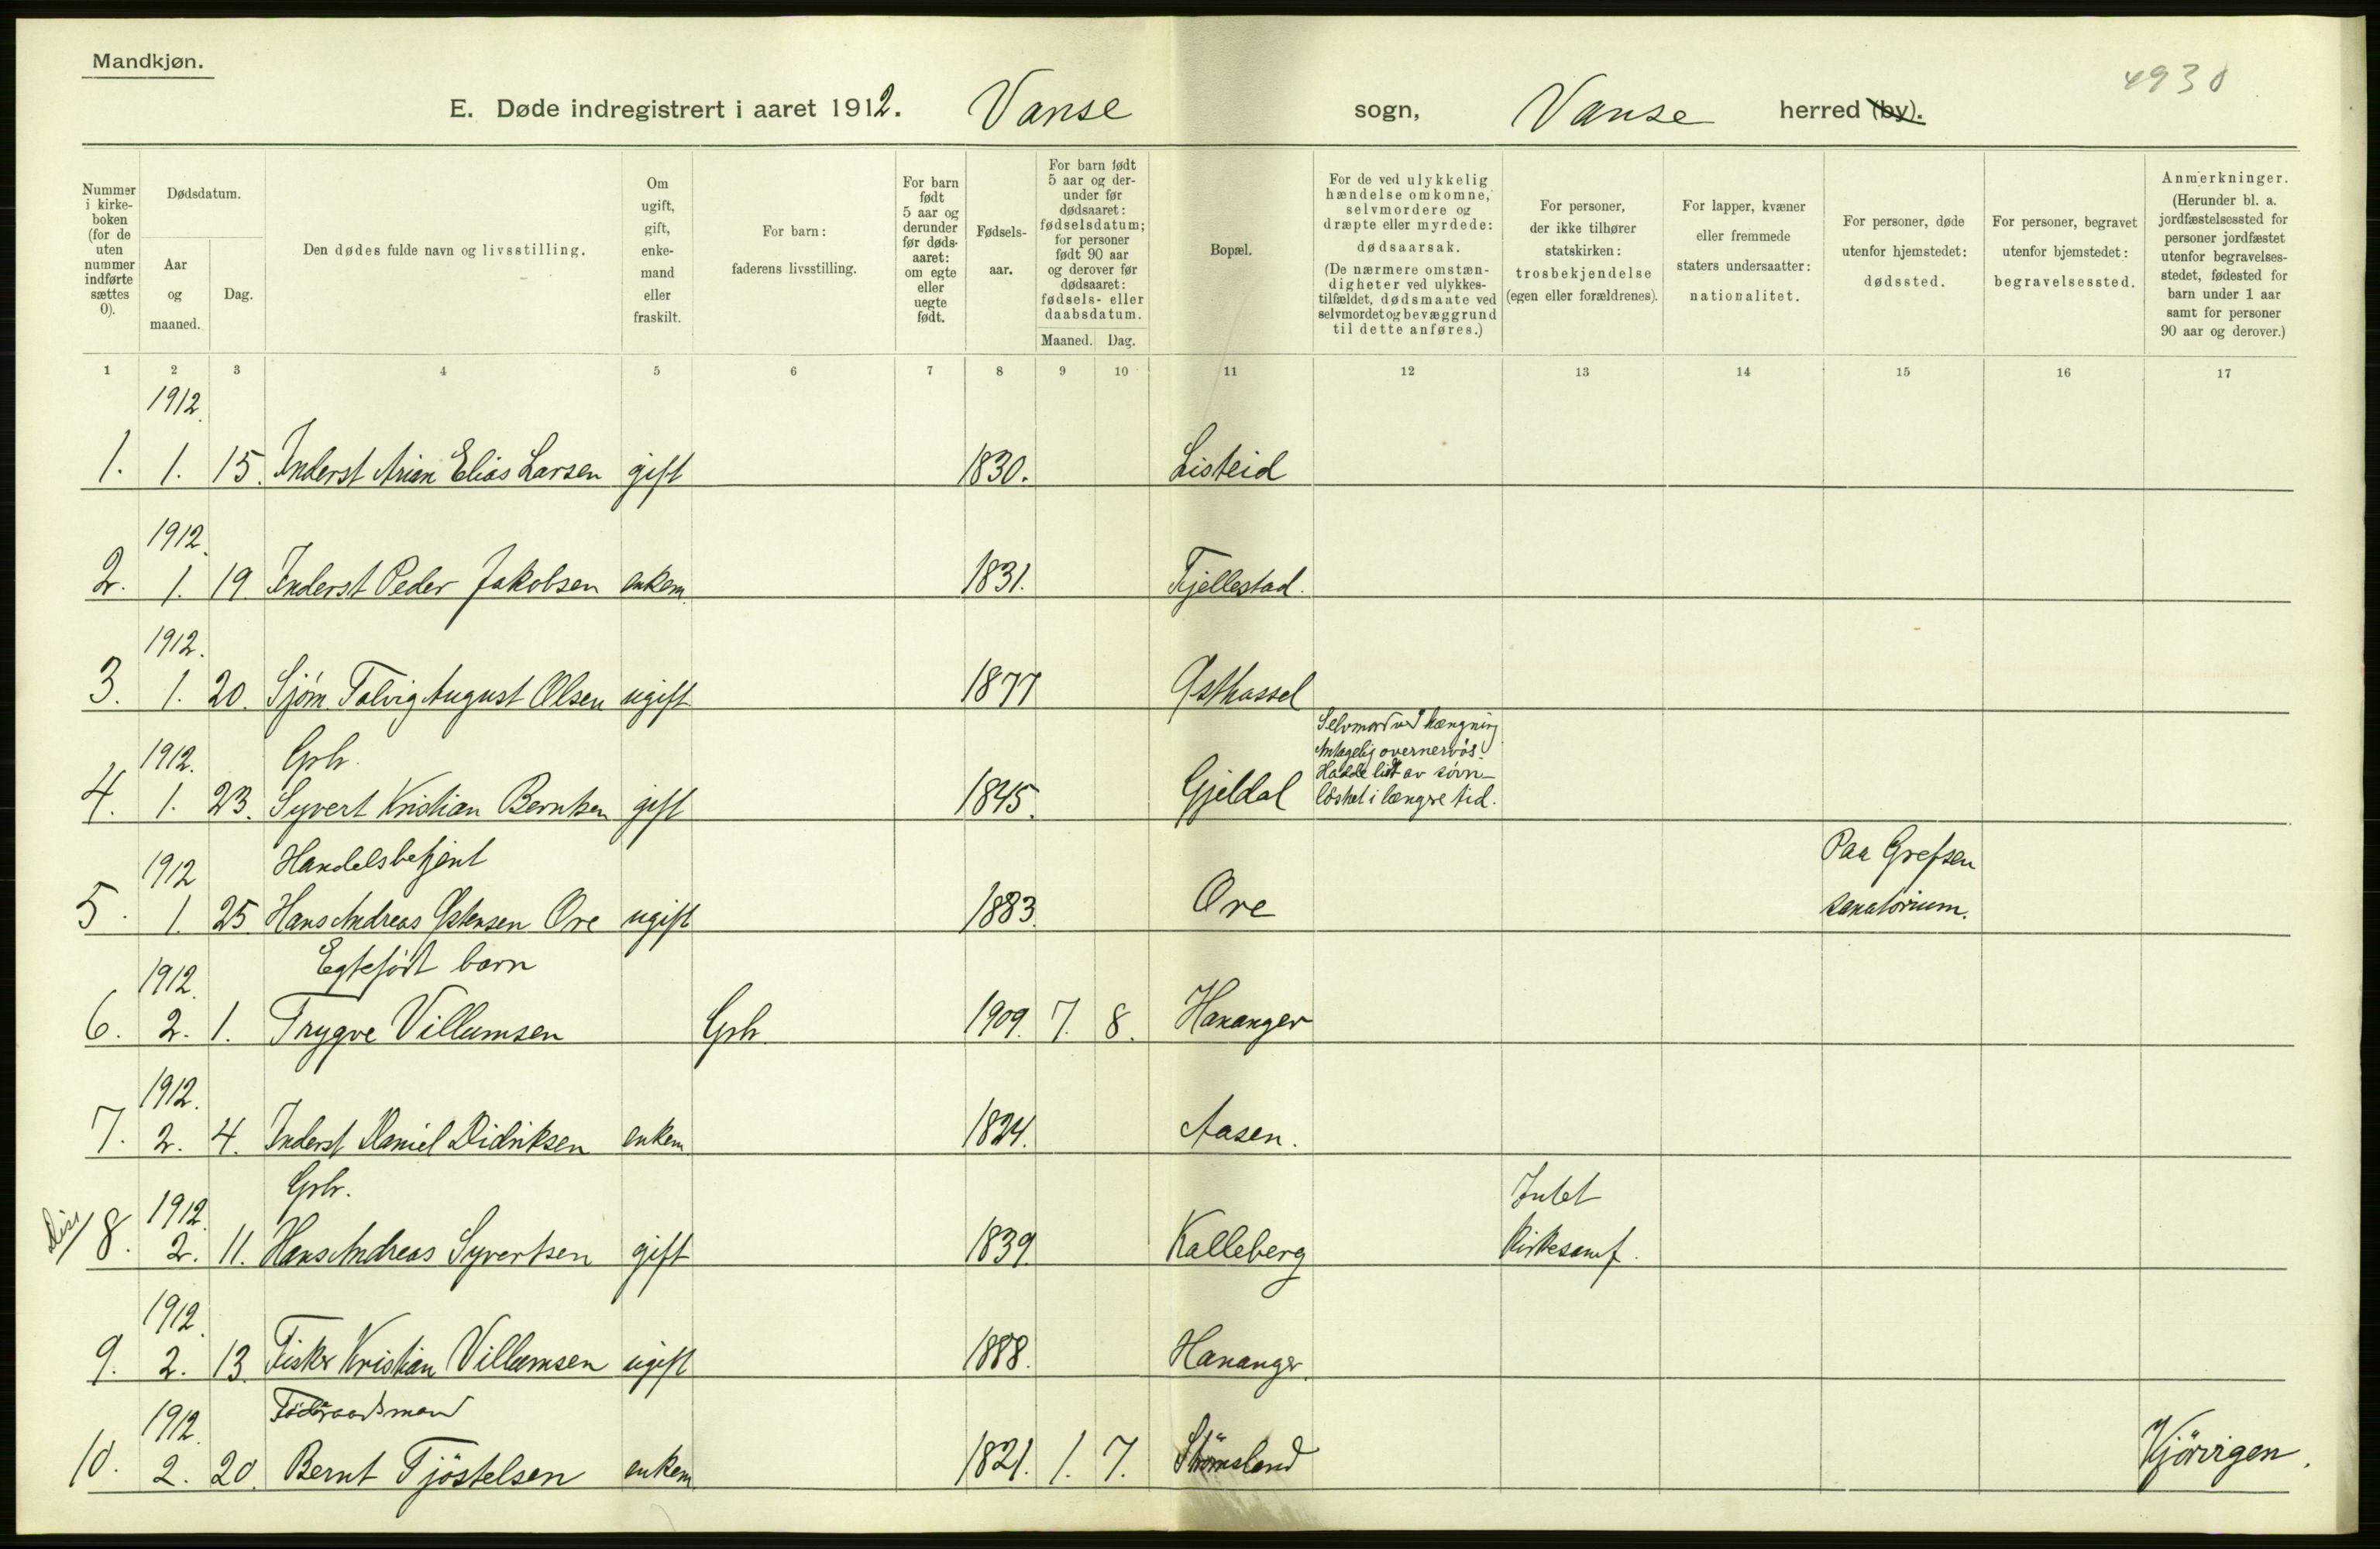 Mandkjøn.
4930
E. Døde indregistrert i aaret 1912. Vanse sogn, Vanse herred (by).
Nummer i kirke-boken (for de uten nummer indførte sættes 0).
Dødsdatum.
Aar og maaned.
Dag.
Den dødes fulde navn og livsstilling.
Om ugift, gift, enke-mand eller fraskilt.
For barn: faderens livsstilling.
For barn født 5 aar og derunder før døds-aaret: om egte eller uegte født.
Fødsels-aar.
For barn født 5 aar og der-under før dødsaaret: fødselsdatum; for personer født 90 aar og derover før dødsaaret: fødsels- eller daabsdatum.
Maaned. Dag.
Bopæl.
For de ved ulykkelig hændelse omkomne, selvmordere og dræpte eller myrdede: dødsaarsak. (De nærmere omstæn-digheter ved ulykkes-tilfældet, dødsmaate ved selvmordet og bevæggrund til dette anføres.)
For personer, der ikke tilhører statskirken: trosbekjendelse (egen eller forældrenes).
For lapper, kvæner eller fremmede staters undersaatter: nationalitet.
For personer, døde utenfor hjemstedet: dødssted.
For personer, begravet utenfor hjemstedet: begravelsessted.
Anmerkninger. (Herunder bl. a. jordfæstelsessted for personer jordfæstet utenfor begravelses-stedet, fødested for barn under 1 aar samt for personer 90 aar og derover.)
1 2 3 4 5 6 7 8 9 10 11 12 13 14 15 16 17
1912.
1. 1. 15. Inderst Arian Elias Larsen gift 1830. Listeid
1912.
2. 1. 19. Inderst Peder Jakobsen enkem. 1831. Tjellestad.
1912.
3. 1. 20. Sjøm. Tolvig August Olsen ugift 1877 Østhassel
Selvmord ved hængning
1912. Grb. Antagelig overnervøs.
Hadde lidt av søvn-
4. 1. 23. Syvert Kristian Berntsen gift 1845. Gjeldal løshet i længre tid.
1912 Handelsbetjent Paa Grefsen
5. 1. 25 Hans Andreas Østensen Ore ugift 1883. Ore sanatorium.
1912. Egtefødt barn
6. 2. 1. Trygve Villumsen Grb. 1909. 7. 8. Hananger
1912.
7. 2. 4. Inderst Daniel Didriksen enkem. 1824. Aasen.
1912. Grb. Intet
Dis. 8. 2. 11. Hans Andreas Syvertsen gift 1839. Kalleberg kirkesamf.
1912.
9. 2. 13. Fisker Kristian Villumsen ugift 1888. Hananger.
1912. Føderaadsmand
10. 2. 20. Bernt Tjöstelsen enkem 1821. 1. 7. Strömsland Kjörrigen.